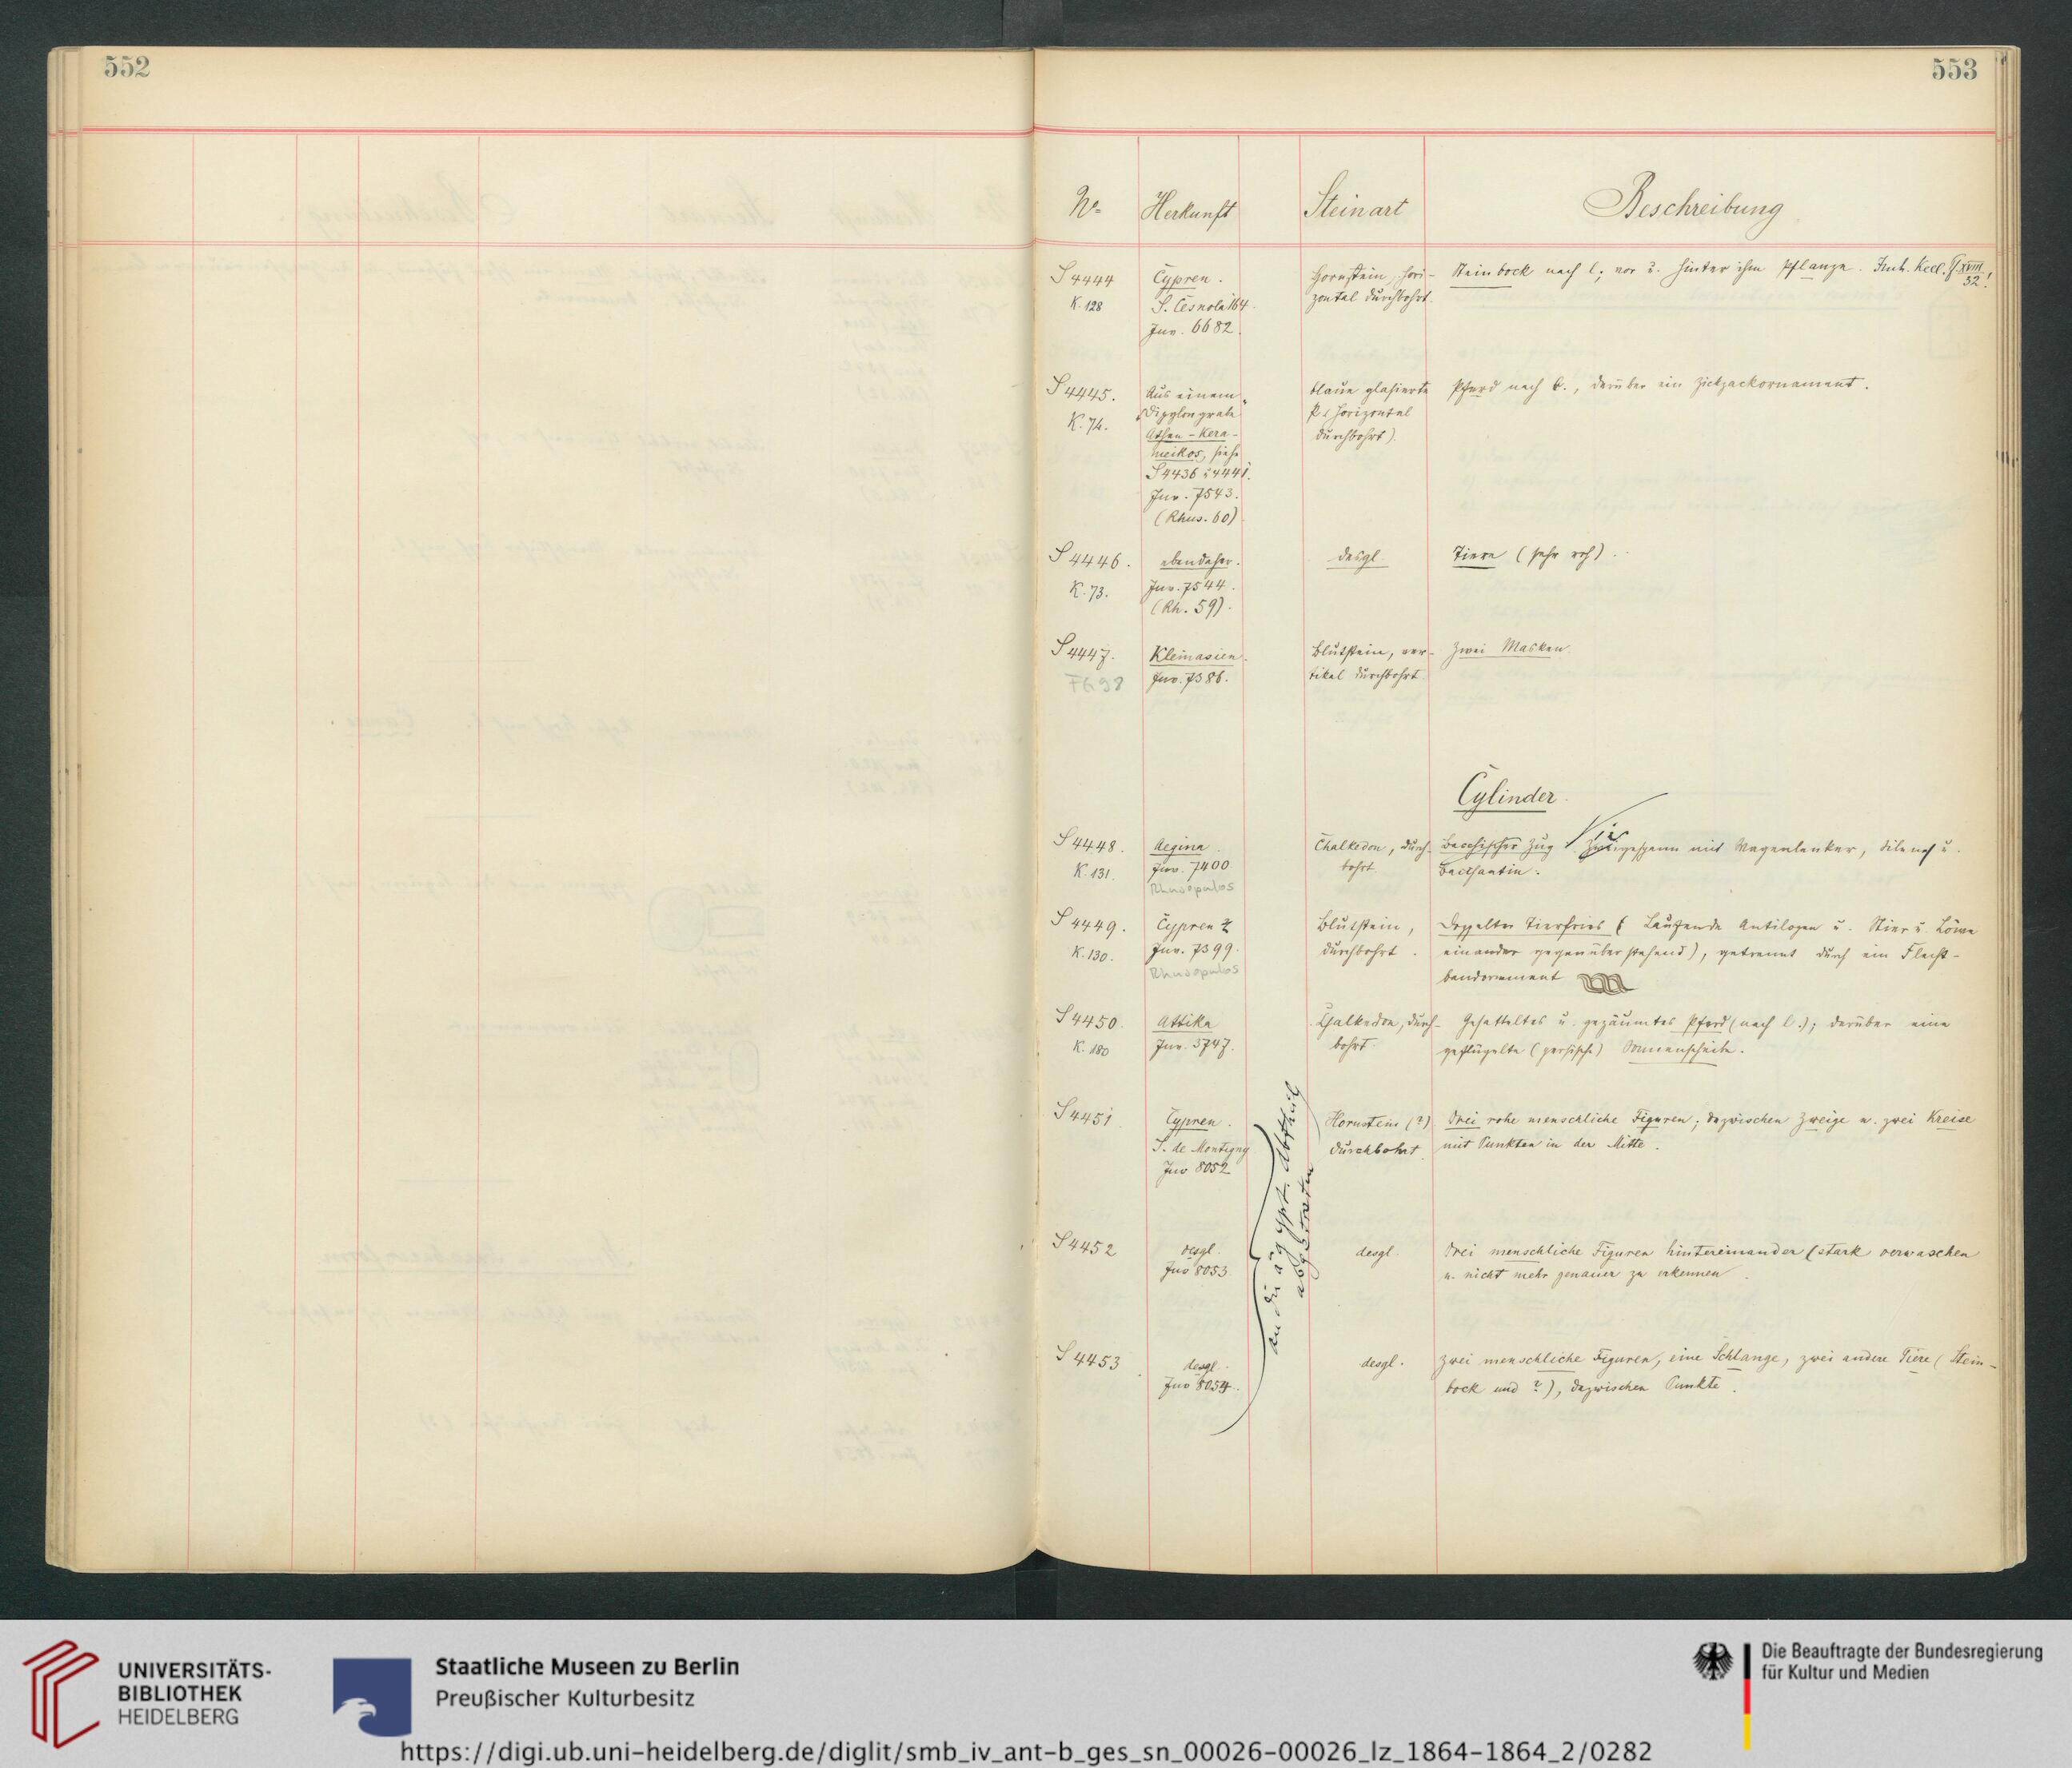 552
553
No Herkunft Steinart Beschreibung
S 4444 Cypern. Hornstein, hori- Steinbock nach l; vor u. hinter ihm Pflanze.
K. 128 S. Cesnola 164 zontal durchbohrt. XVIII 32!
Inv. 6682.
S 4445. Aus einem blaue glasierte Pferd nach l., darüber ein Zickzackornament.
K. 74. Dipylongrabe horizontal
Athen-Kera- durchbohrt).
meikos, siehe
S 4436 4441.
Inv. 7543.
(Rhus. 60)
S 4446. ebendaher. desgl. Tiere (sehr roh).
K. 73. Inv. 7544.
(Rh. 59).
S 4447. Kleinasien. Blutstein, ver- Zwei Masken.
Inv. 7386. tikal durchbohrt
Cylinder.
S 4448. Aegina. Chalkedon, durch- Bacchischer Zug Viergespann mit Wagenlenker, Silen u.
K. 131. Inv. 7400 bohrt Bacchantin.
Rhusopulos
S 4449. Cypern Blutstein, Doppelter Tierfries (Laufende Antilopen u. Stier u. Löwe
K. 130. Inv. 7399. durchbohrt. einander gegenüberstehend), getrennt durch ein Flecht-
Rhusopulos bandornament
S 4450. Attika Chalkedon, durch- Gesatteltes u. gezäumtes Pferd (nach l.); darüber eine
K. 180 Inv. 3747. bohrt. geflügelte (persische) Sonnenscheibe.
S 4451 Cypern. Hornstein (?) Drei rohe menschliche Figuren; dazwischen Zweige u. zwei Kreise
S. de Montigny durchbohrt. mit Punkten in der Mitte.
Inv 8052
an die ägypt. Abtheil
abgetreten
S 4452 desgl. desgl. Drei menschliche Figuren hintereinander (stark verwaschen
Inv 8053 u. nicht mehr genauer zu erkennen
S 4453 desgl. desgl. Zwei menschliche Figuren, eine Schlange, zwei andere Tiere (Stein-
Inv 8054. bock und ?), dazwischen Punkte.
UNIVERSITÄTS-
BIBLIOTHEK
HEIDELBERG
Staatliche Museen zu Berlin
Preußischer Kulturbesitz
Die Beauftragte der Bundesregierung
für Kultur und Medien
https://digi.ub.uni-heidelberg.de/diglit/smb_iv_ant-b_ges_sn_00026-00026_lz_1864-1864_2/0282